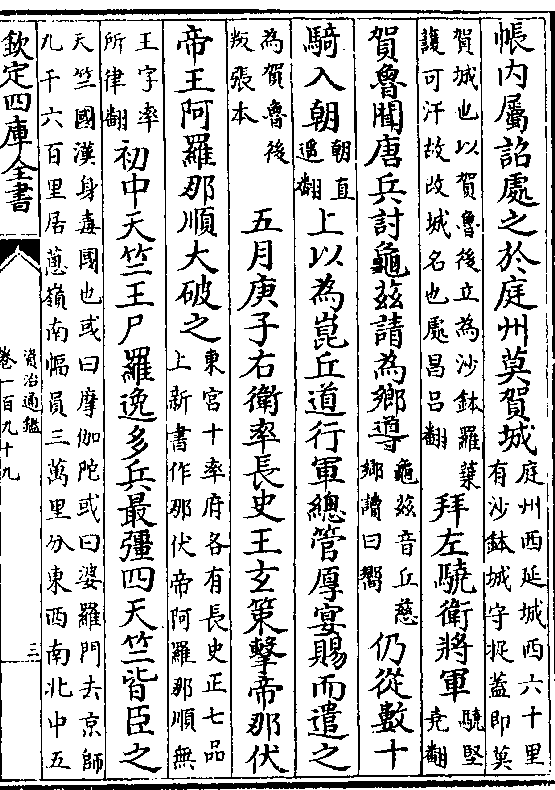 帳内屬詔處之於庭州莫賀城庭州西延城西六十里有沙鉢城守捉蓋即莫
賀城也以賀魯後立為沙鉢羅葉護可汗故改城名也處昌呂翻拜左驍衛將軍驍堅堯翻
賀魯聞唐兵討龜兹請為鄉導龜兹音丘慈鄉讀曰嚮仍從數十
騎入朝朝直遥翻上以為崑丘道行軍總管厚宴賜而遣之
為賀魯後叛張本五月庚子右衛率長史王玄策擊帝那伏
帝王阿羅那順大破之東宮十率府各有長史正七品上新書作那伏帝阿羅那順無
王字率所律翻初中天竺王尸羅逸多兵最彊四天竺皆臣之
天竺國漢身毒國也或曰摩伽陀或曰婆羅門去京師九千六百里居蔥嶺南幅員三萬里分東西南北中五
欽定四庫全書
資治通鑑
卷一百九十九
三